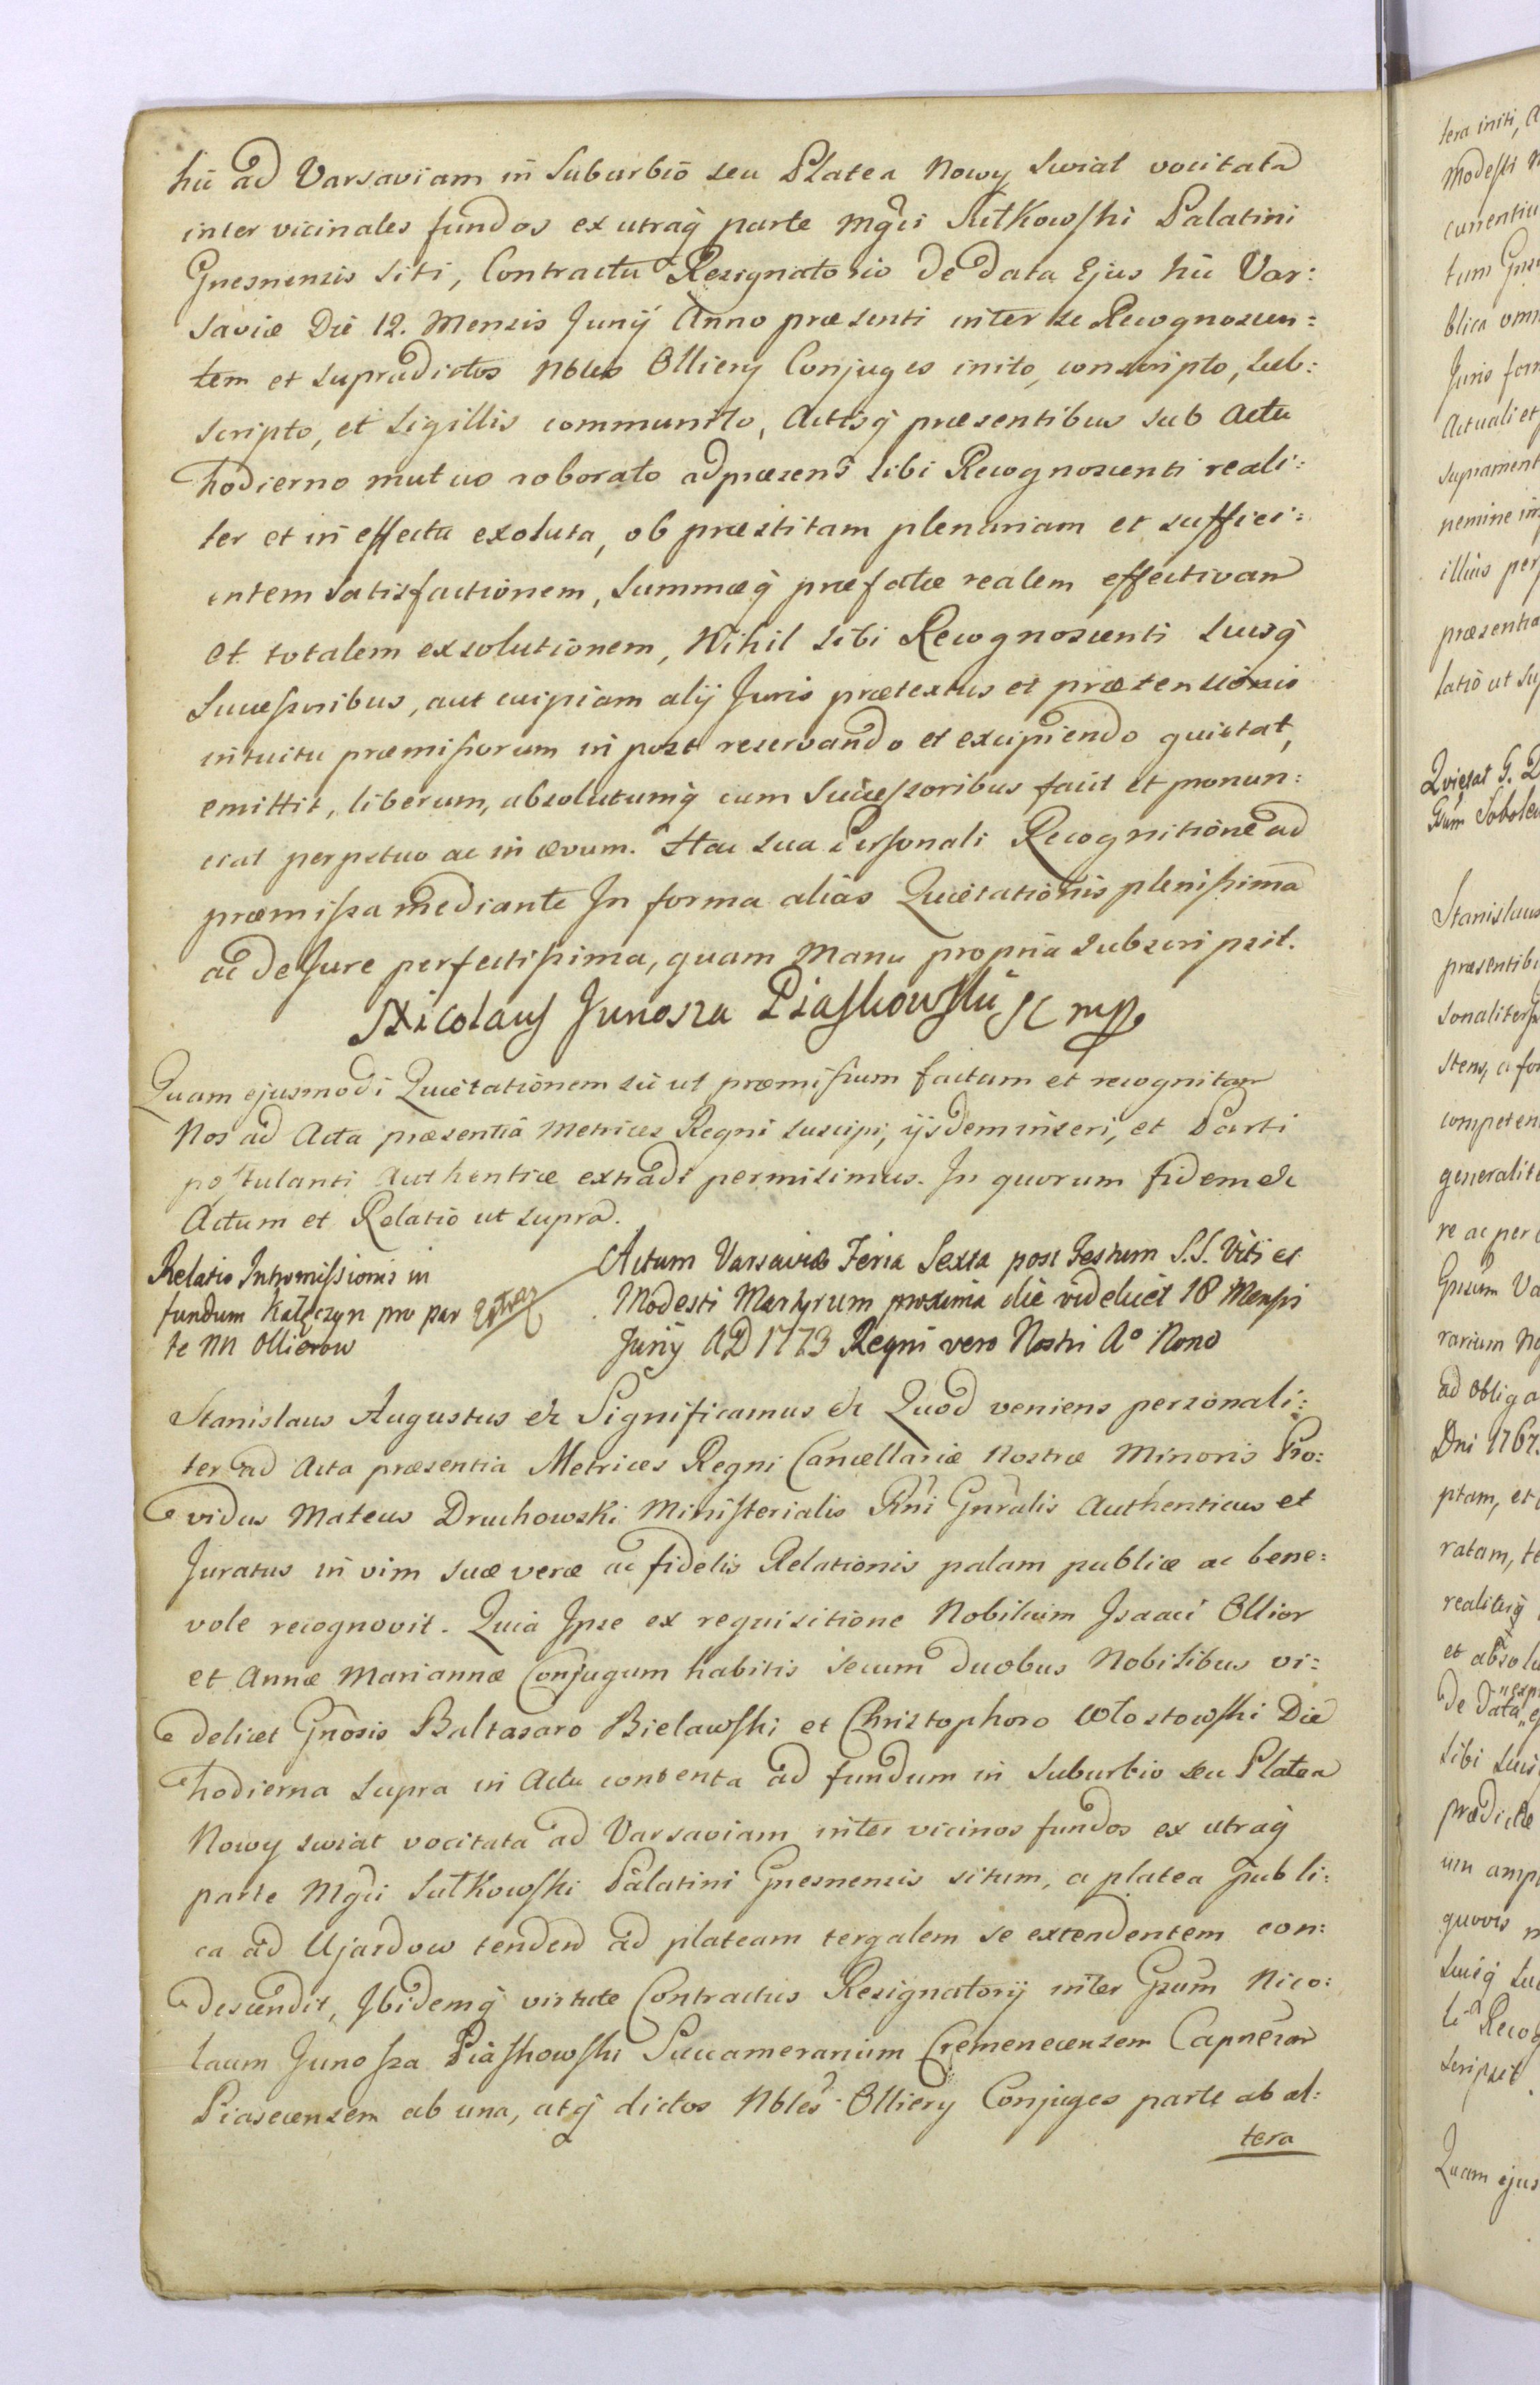 hic ad Varsaviam in Suburbio seu Platea Nowy Swiat vocitata
inter vicinales fundos ex utraq̃ parte Mgci Sułkowski Palatini
Gnesnensis siti, Contractu Resignatorio de data Ejus hic Var:
saviæ Die 12. Mensis Junij Anno præsenti inter se Recognoscen:
tem et supradictos Nbles Olliery Conjuges inito, conscripto, sub:
scripto, et sigillis communito, Actisq̃ præsentibus sub Actu
hodierno mutuo roborato adpræsens sibi Recognoscenti reali:
ter et in effectu exoluta, ob præstitam plenariam et suffici:
entem satisfactionem, Summæq̃ præfatæ realem effectivam
et totalem exsolutionem, Nihil sibi Recognoscenti suisq̃
Successoribus, aut cuipiam alij Juris prætextus et prætensionis
intuitu præmissorum in post reservando et excipiendo quietat,
emittit, liberum, absolutumq̃ cum Successoribus facit et pronun:
ciat perpetuo ac in ævum. Hac sua Personali Recognitione ad
præmissa mediante In forma alias Quietationis plenissima
ac de Jure perfectissima, quam Manu propria subscripsit.
Nicolaus Junosza Piaskowski SC mp
Quam ejusmodi Quietationem sic ut præmissum factam et recognitam
Nos ad Acta præsentia Metrices Regni suscipi, ijsdem inseri, et Parti
postulanti Authentice extradi permisimus. In quorum fidem &c
Actum et Relatio ut supra.
Relatio Intromissionis in
fundum Kałęczyn pro par
te NN Ollierow
Extrad
Actum Varsaviæ Feria Sexta post Festum S.S. Viti et
Modesti Martyrum proxima die videlicet 18 Mensis
Junij AD 1773 Regni vero Nostri Aº Nono
Stanislaus Augustus &c Significamus &c Quod veniens personali:
ter ad Acta præsentia Metrices Regni Cancellariæ Nostræ Minoris Pro:
vidus Mateus Druchowski Ministerialis Rñi Gñralis Authenticus et
Juratus in vim suæ veræ ac fidelis Relationis palam publice ac bene:
vole recognovit. Quia Ipse ex requisitione Nobilium Isaaci Ollier
et Annæ Mariannæ Conjugum habitis secum duobus Nobilibus vi:
delicet Gñosis Baltasaro Bielawski et Christophoro Włostowski Die
hodierna supra in Actu contenta ad fundum in Suburbio seu Platea
Nowy swiat vocitata ad Varsaviam inter vicinos fundos ex utraq̃
parte Mgci Sułkowski Palatini Gnesnensis situm, a platea publi:
ca ad Ujazdow tenden ad plateam tergalem se extendentem con:
descendit, Ibidemq̃ virtute Contractus Resignatorij inter Gsum Nico:
laum Junosza Piaskowski Succamerarium Cremenecensem Capneum
Piasecensem ab una, atq̃ dictos Nbles Olliery Conjuges parte ab al:
tera